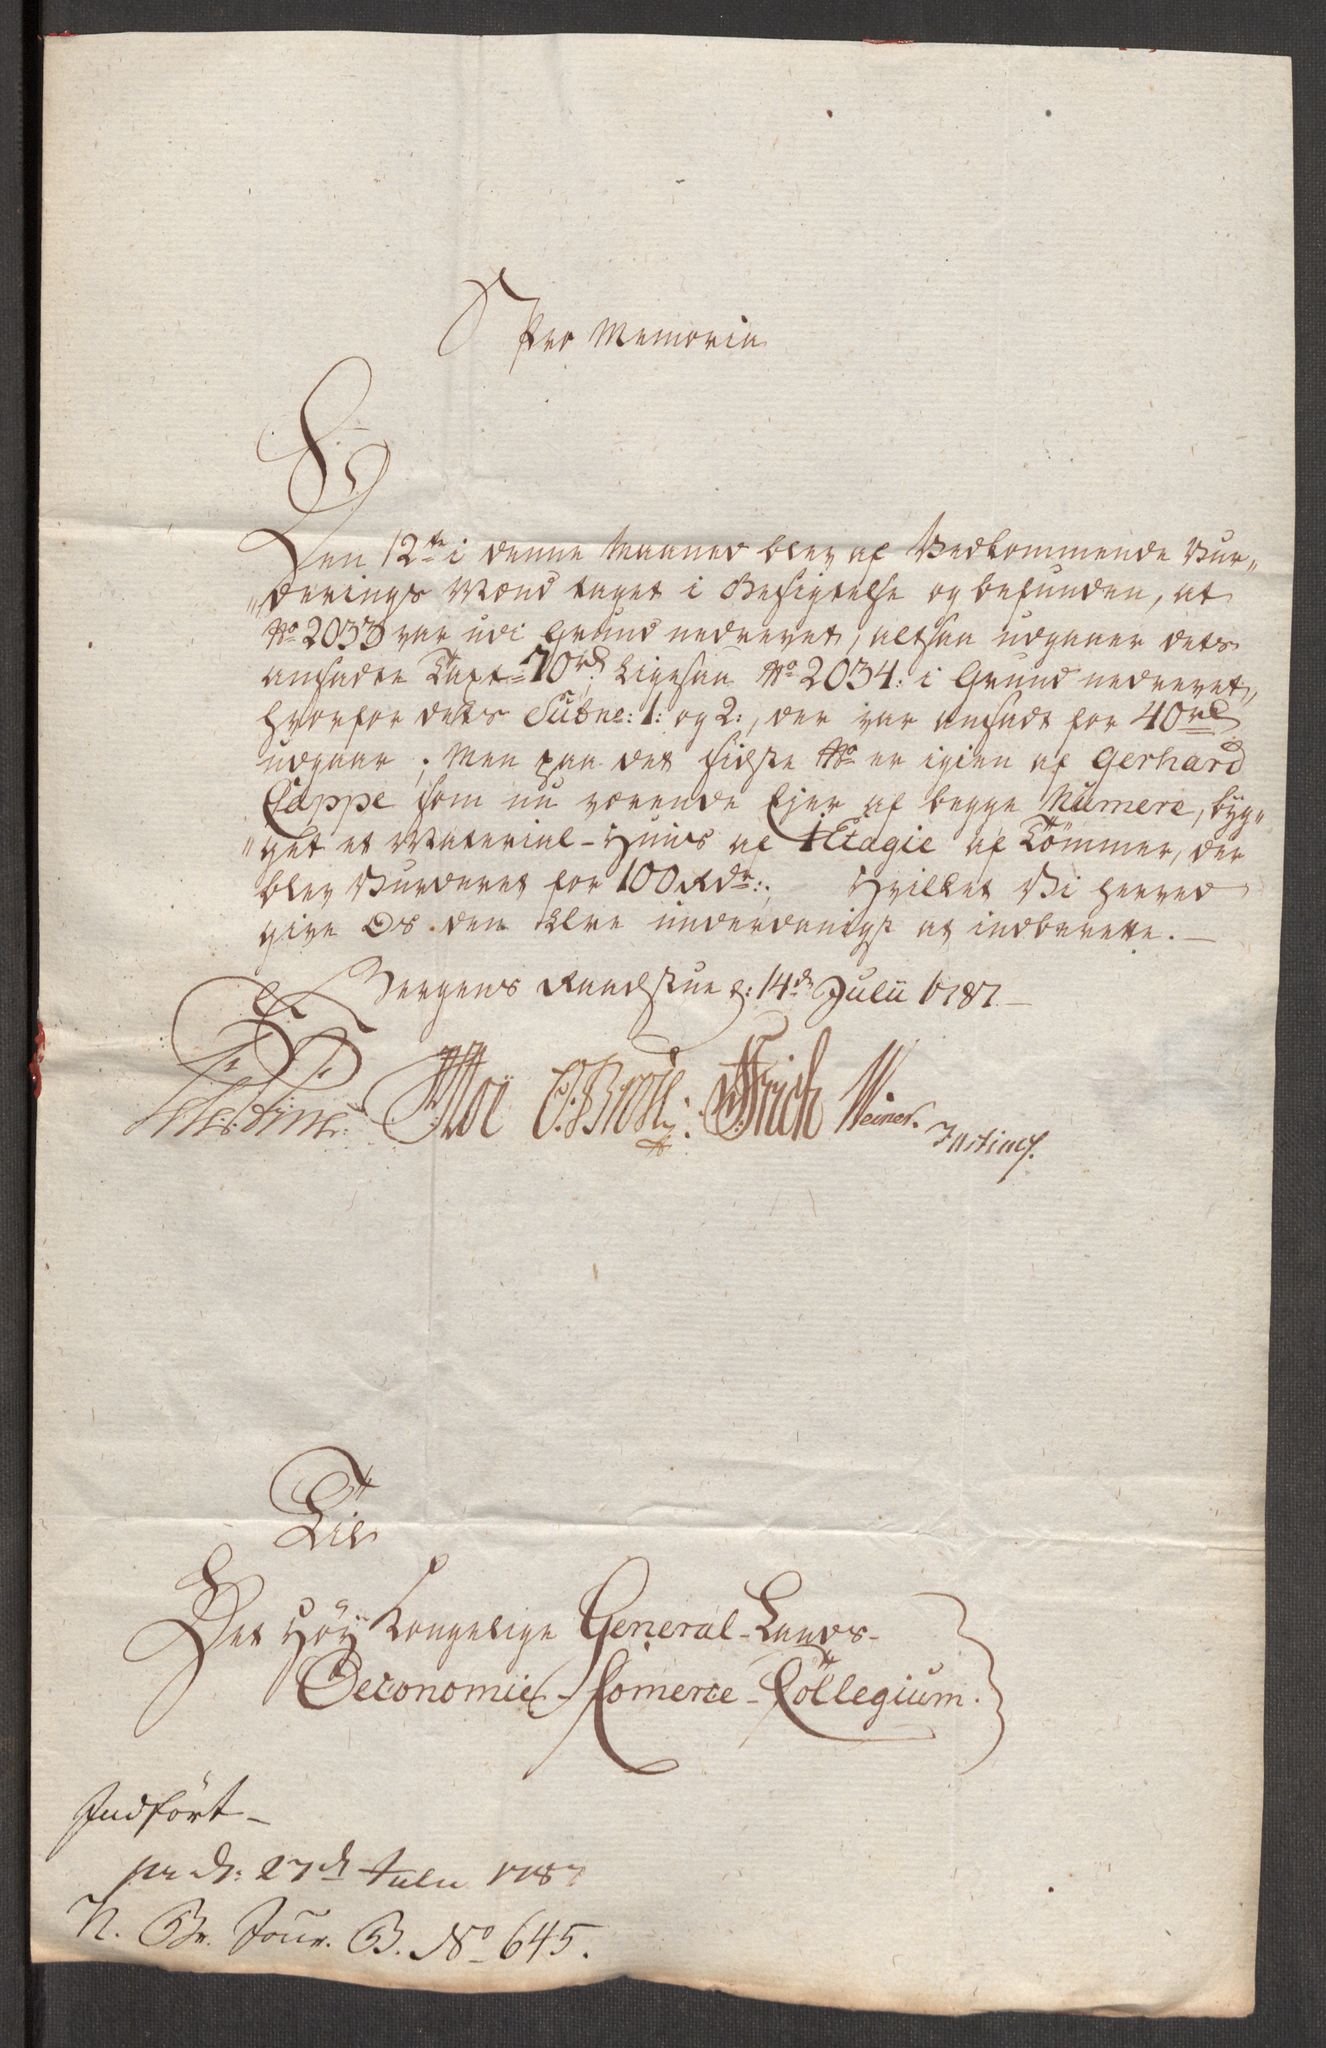 Pro Memoria
Den 12te i denne Maaned blev af Vedkommende Vur„
„derings Mænd taget i Besigtelse og befunden, at
No 2033 var udi Grund nedrevet, altsaa udgaaer dets
ansadte Taxt = 70rd. Ligesaa No 2034: i Grund nedrevet,
hvorfor dets Subne: 1: og 2:, der var ansadt for 40rd
udgaar; Men paa det sidste No er igien af Gerhard
Cappe som nu værende Ejer af begge Numere, byg„
„get et Material-Huus af 1 Etagie af Tömmer, der
blev Vurderet for 100 Rdr:. Hvilket Vi herved
give Os den Ære underdanigst at indberette.
Bergens Raadstue d: 14de Julii 1787
O: Brose: Frich Weiner.
Til
Det Höÿ Kongelige General-Lands-
Oeconomie-Comerce-Collegium.
Indfört
pr d: 27de Julii 1787
N. Br. Jour. B. No 645.